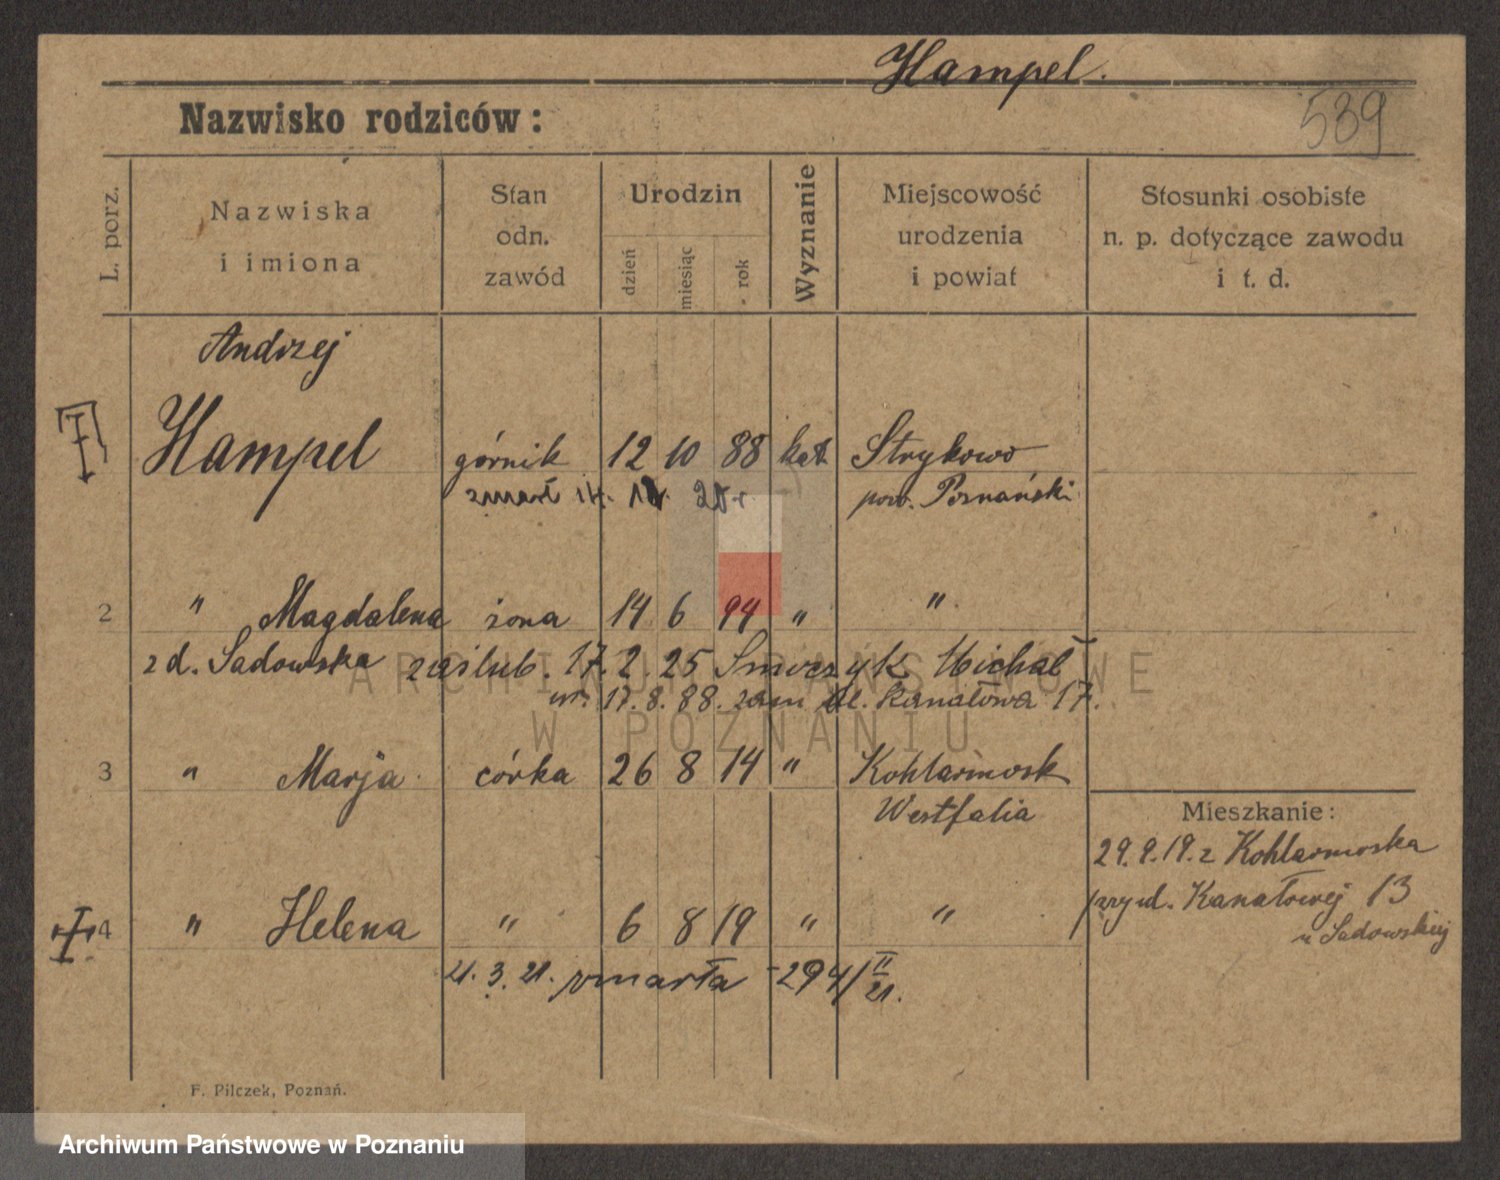 Hampel.
589
Nazwisko rodziców:
L. porz.
Nazwiska i imiona
Stan odn. zawód
Urodzin
dzień
miesiąc
rok
Wyznanie
Miejscowość urodzenia i powiat
Stosunki osobiste n. p. dotyczące zawodu i t. d.
Andrzej
Hampel górnik 12 10 88 kat Strykowo
zmarł 20 r pow. Poznański
2 " Magdalena żona 14 6 94 " "
z d. Sadowska zaślub. 17.2.25 Smoczyk Michał
ur. 17.8.88. zam ul. Kanałowa 17.
3 " Marja córka 26 8 14 " Kohlarmosk
Westfalia
Mieszkanie:
29.9.19. z Kohlarmoska
przy ul. Kanałowej 13
u Sadowskiej
4 " Helena " 6 8 19 " "
21.3.21. zmarła -294/II 21.
F. Pilczek, Poznań.
ARCHIWUM PAŃSTWOWE
W POZNANIU
Archiwum Państwowe w Poznaniu